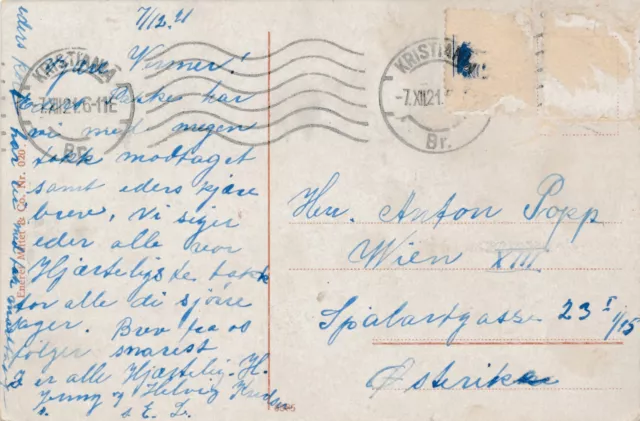 7/12.21
Kjære Venner!
Eders Pakke har
vi med megen
takk modtaget
samt eders kjære
brev, Vi siger
eder alle vor
Hjærteligste takk
for alle di sjøne
sager. Brev fra os
følger snarest
er alle Hjærtelig. H.
og Helvig
& E. L.
KRISTIANIA
7.XII.21.6-11E
Br.
KRISTIANIA
-7.XII.21.
Br.
Hrn. Anton Popp
Wien XIII
Spalartgasse 23 I/15
Østerike
Eneret Mittet & Co. Nr.